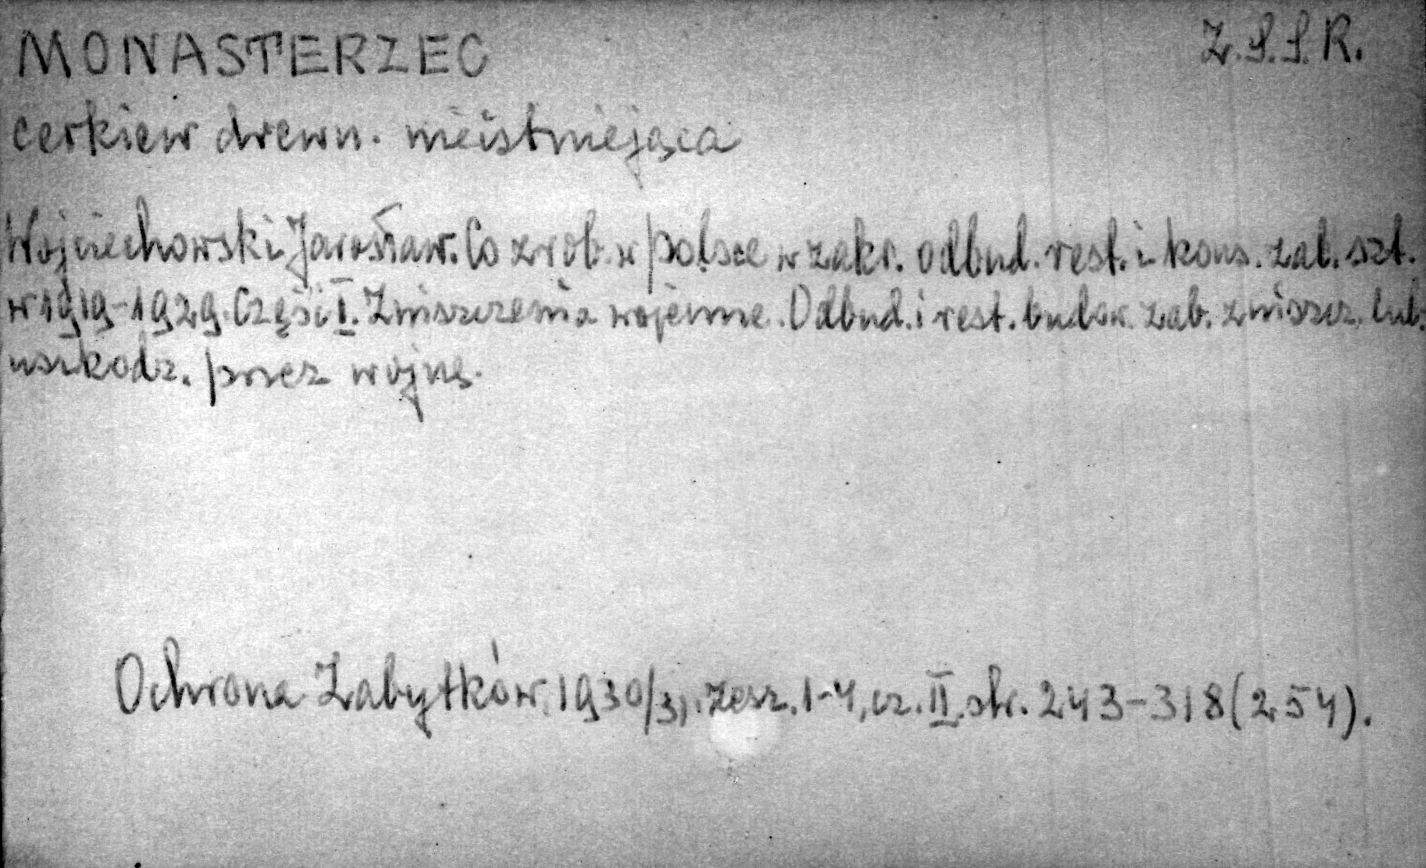 MONASTERZEC Z.S.S.R.
cerkiew drewn. nieistniejąca
Wojciechowski Jarosław. Co zrob. w Polsce w zakr. odbud. rest. i kons. zab. szt.
w 1919-1929. Części I. Zniszczenia wojenne. Odbud. i rest. budow. zab. zniszcz. lub
uszkodz. przez wojnę.
Ochrona Zabytków. 1930/31. zesz. 1-4, cz. II. str. 243-318 (254).